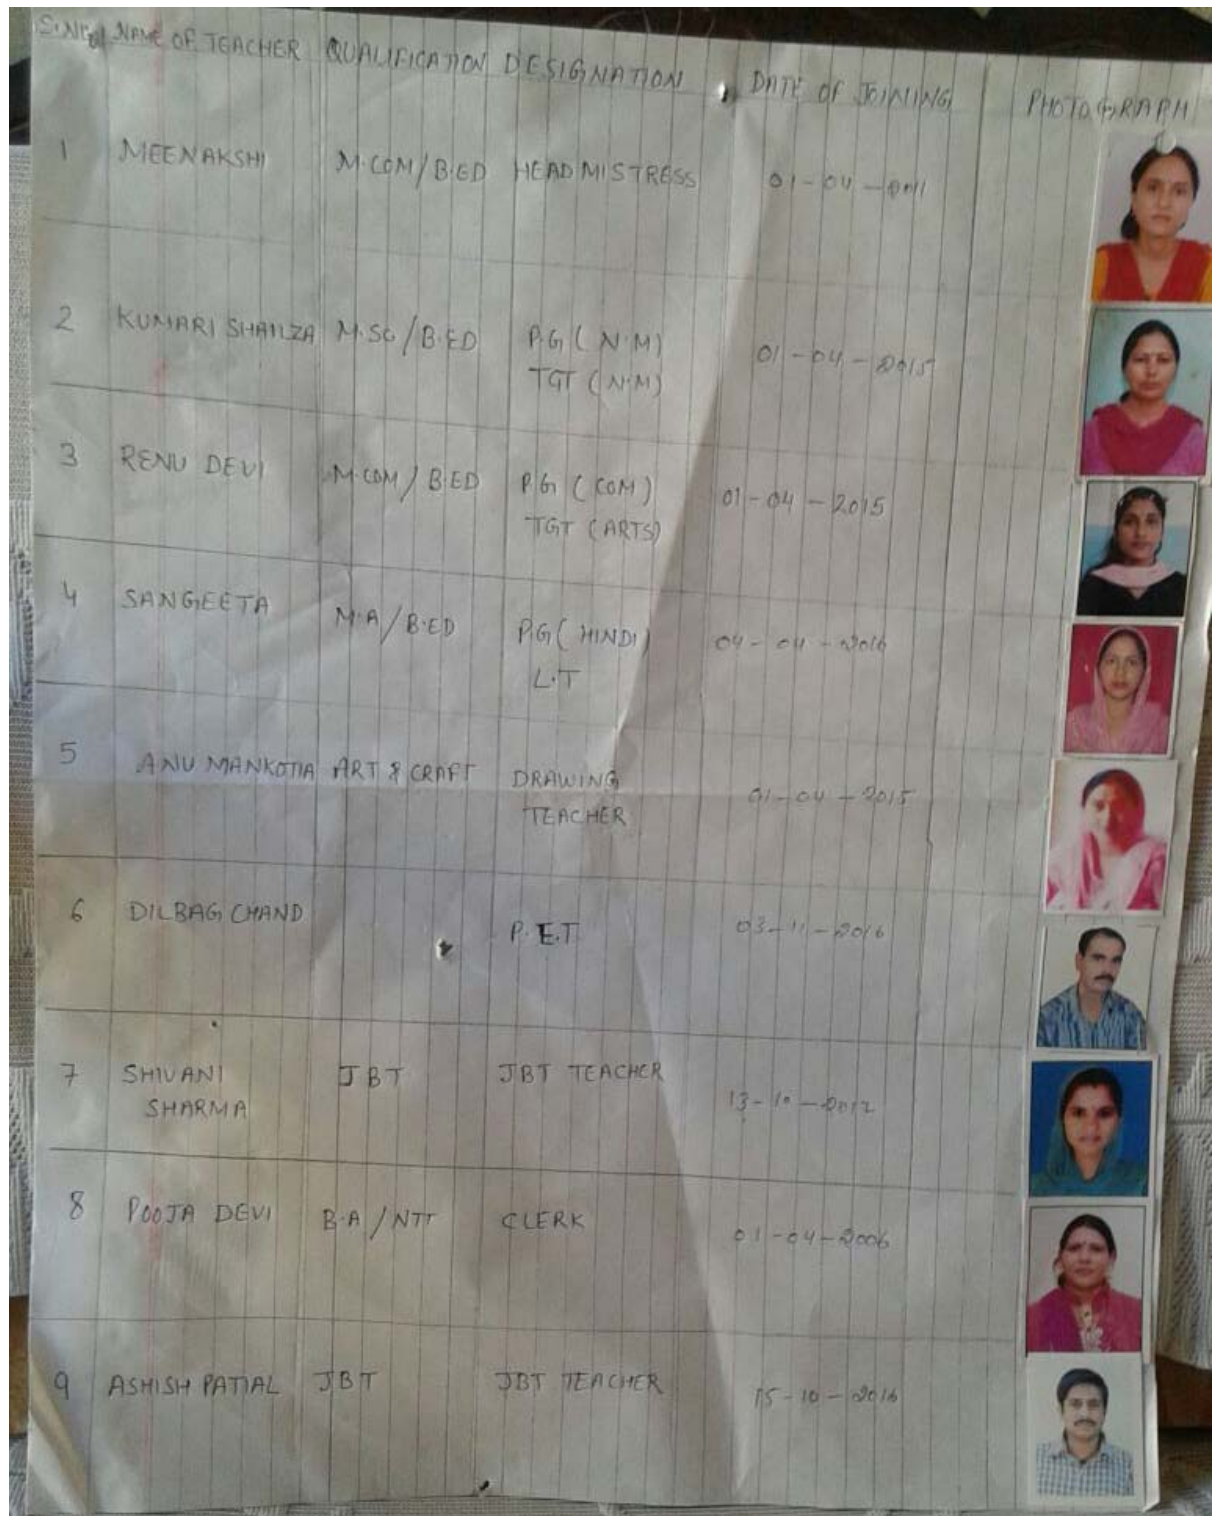 S.NO NAME OF TEACHER QUALIFICATION DESIGNATION DATE OF JOINING PHOTOGRAPH
1 MEENAKSHI M.COM/B.ED HEADMISTRESS 01-04-2011
2 KUMARI SHAILZA M.SC/B.ED P.G(N.M) 01-04-2015
TGT (N.M)
3 RENU DEVI M.COM/B.ED P.G (COM) 01-04-2015
TGT (ARTS)
4 SANGEETA M.A/B.ED P.G(HINDI) 04-04-2016
L.T
5 ANU MANKOTIA ART & CRAFT DRAWING 01-04-2015
TEACHER
6 DILBAG CHAND P.E.T 03-11-2016
7 SHIVANI JBT JBT TEACHER 13-10-2012
SHARMA
8 POOJA DEVI B.A/NTT CLERK 01-04-2006
9 ASHISH PATIAL JBT JBT TEACHER 15-10-2016